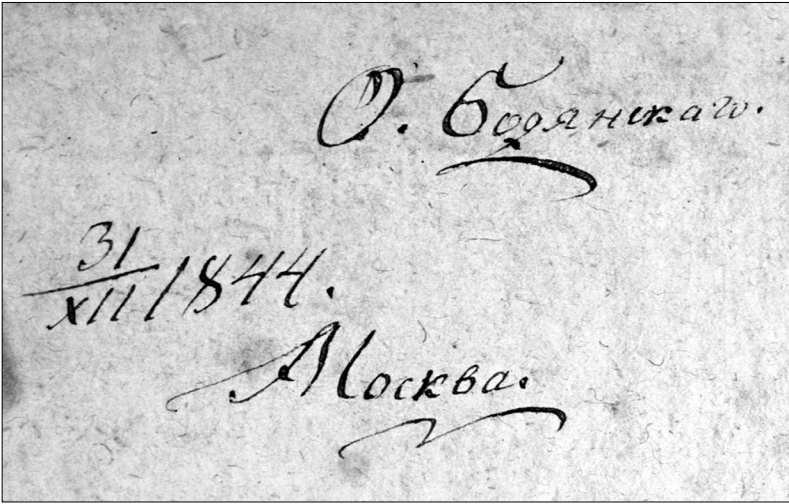 О. Бодянскаго.
31/XII 1844.
Москва.